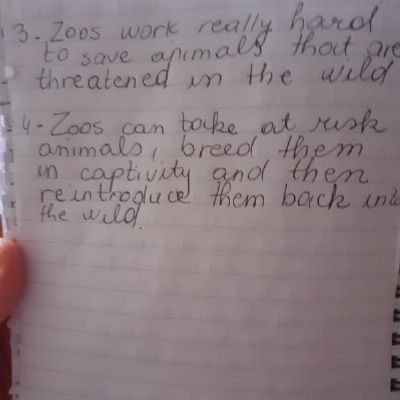 3 - Zoos work really hard
to save animals that are
threatened in the wild
4 - Zoos can take at risk
animals, breed them
in captivity and then
reintroduce them back into
the wild.